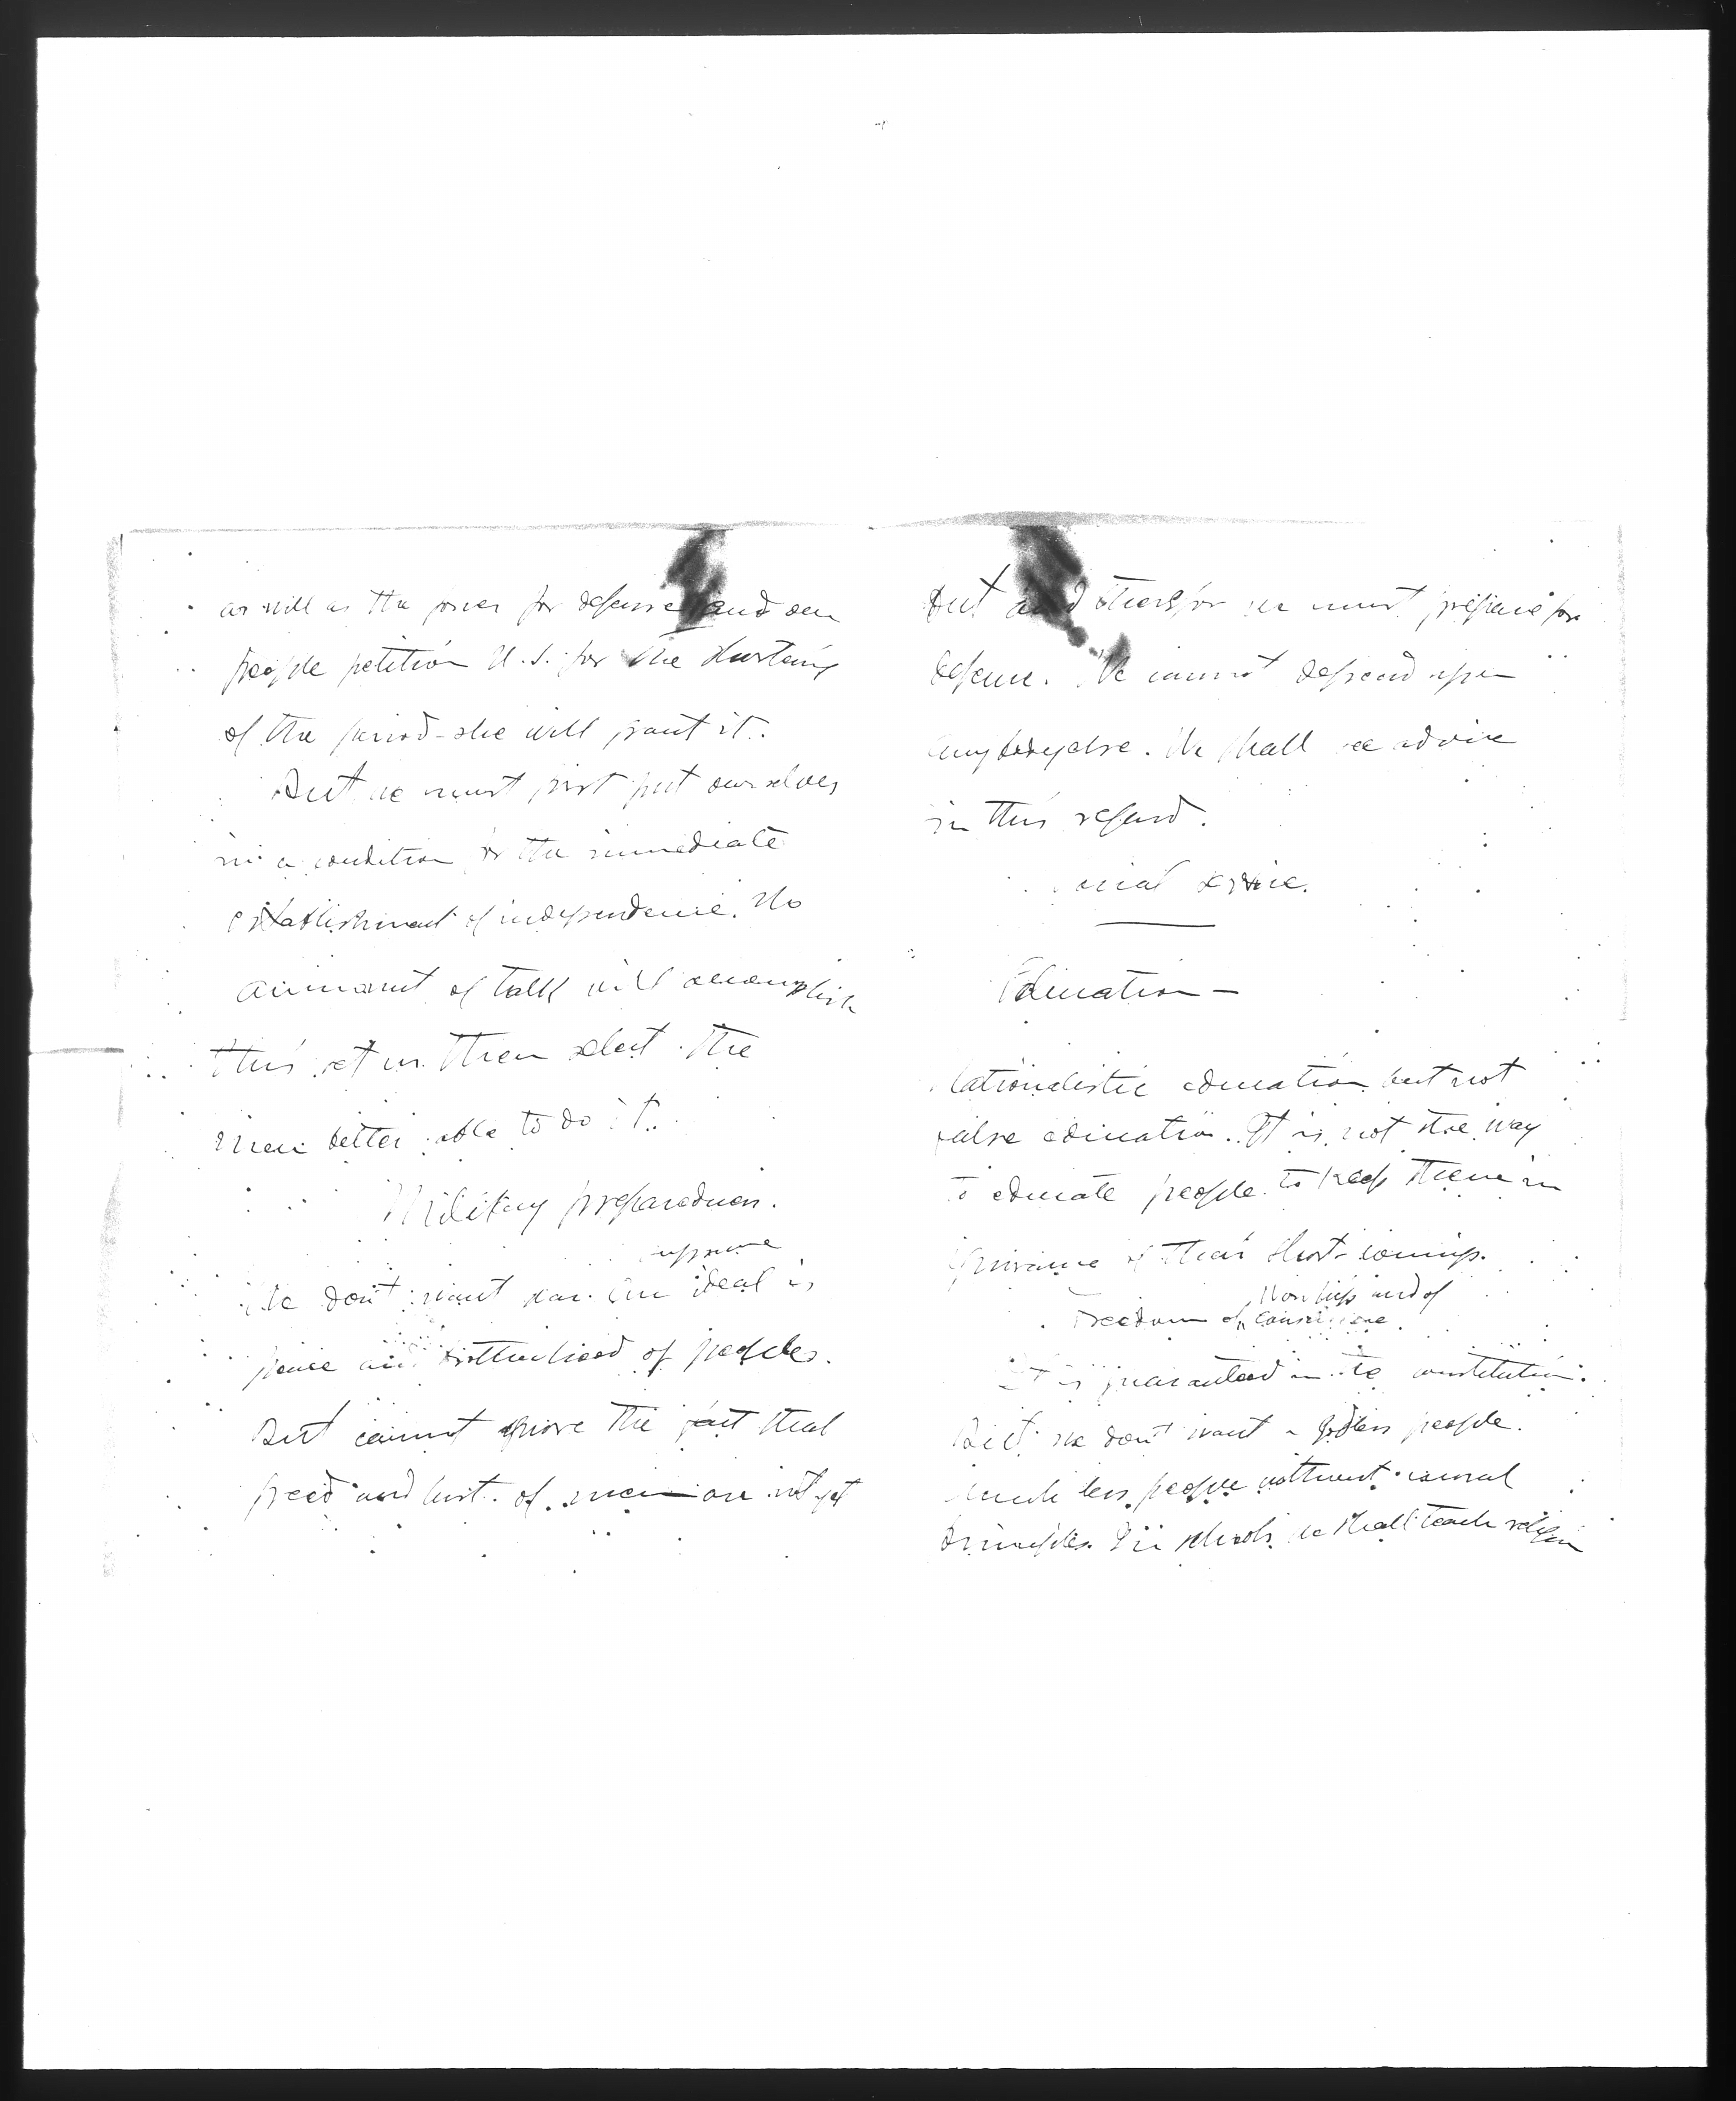 as well as the power for defense and our
people petition U.S. for the shortening
of the period - she will grant it.
But we must first put ourselves
in a condition for the immediate
establishment of independence. No
ammount of talk will accomplish
this. Let us then select the
men better able to do it.
Military preparedness.
supreme
We don't want war. Our ideal is
peace and brotherhood of peoples.
But cannot ignore the fact that
greed and lust of men are not yet
But and therefor we must prepare for
defense. We cannot depend upon
anybody else. We shall see advice
in this regard.
service.
Education -
Nationalistic education but not
false education. It is not the way
to educate people to keep them in
ignorance of their short-comings.
Worship and of
Freedom of conscience.
It is guaranteed in the constitution.
But we don't want a godless people.
much less people without moral
principles. In schools we shall teach religion